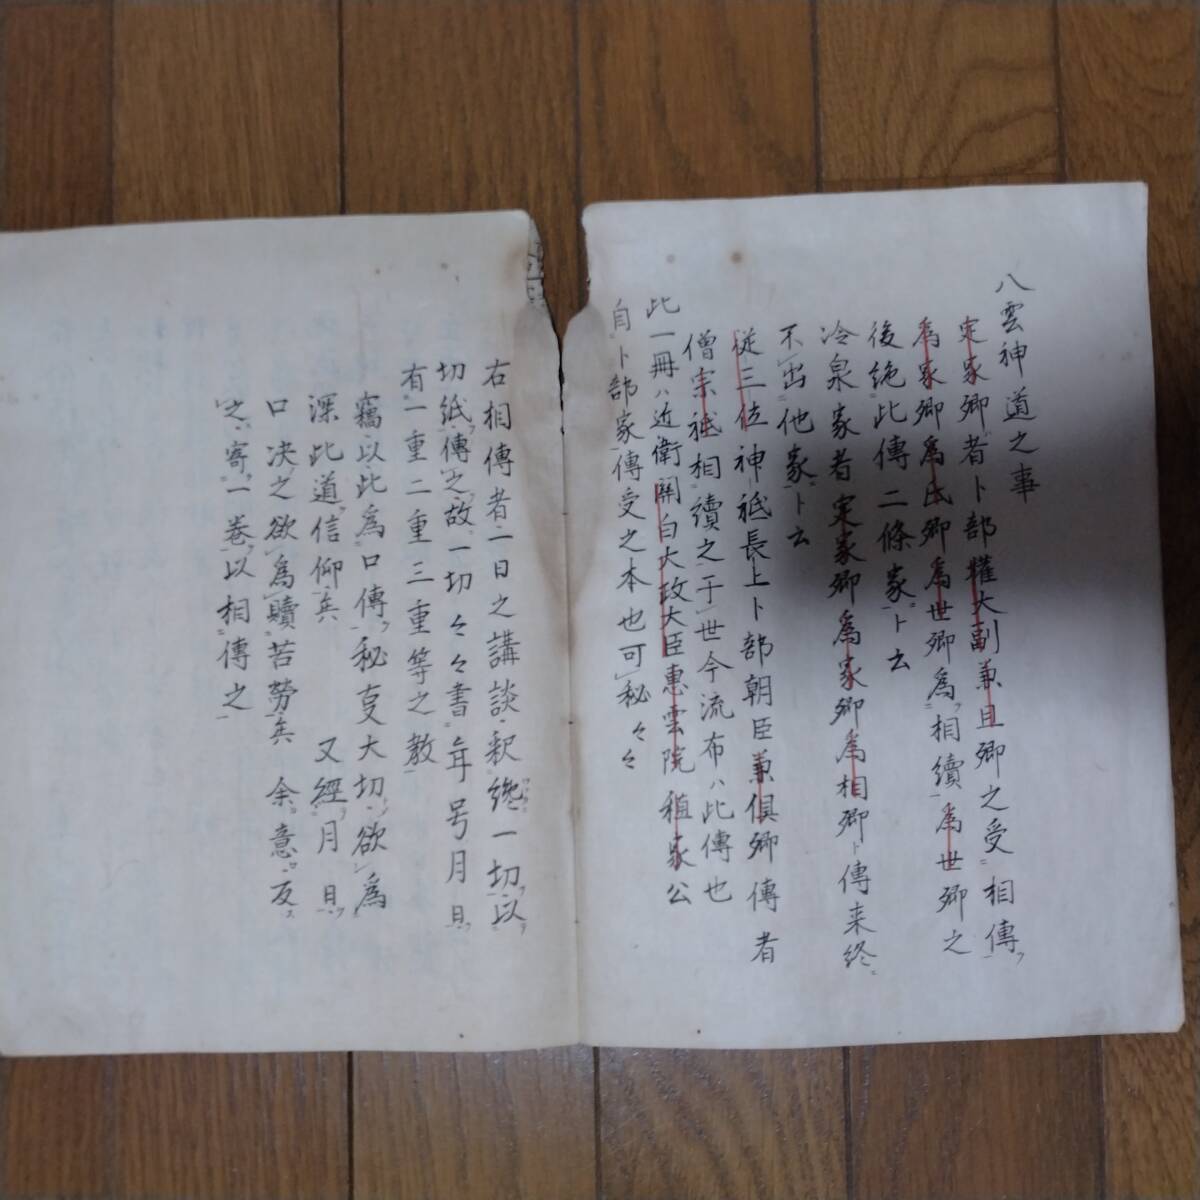 八雲神道之事
定家卿者卜部權大副兼直卿之受相傳
爲家卿爲氏卿爲世卿爲相續爲世卿之
後絶此傳二條家ト云
冷泉家者定家卿爲家卿爲相卿ト傳来終
不出他家ト云
従三位神祇長上卜部朝臣兼倶卿傳者
僧宗祇相續之于世今流布ハ此傳也
此一冊ハ近衛關白大政大臣惠雲院稙家公
自卜部家傳受之本也可秘々々
右相傳者一日之講談釈纔一切以
切紙傳之故一切々々書年号月日
有一重二重三重等之教
竊以此爲口傳秘㕝大切欲爲
深此道信仰矣 又經月日
口决之欲爲贖苦勞矣 余意反
之寄一巻以相傳之